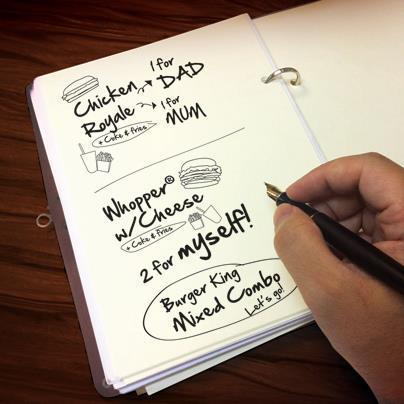 Chicken Royale
1 for DAD
1 for MUM
+ Coke & fries
Whopper®
w/Cheese
+ Coke & fries
2 for myself!
Burger King
Mixed Combo
Let's go!